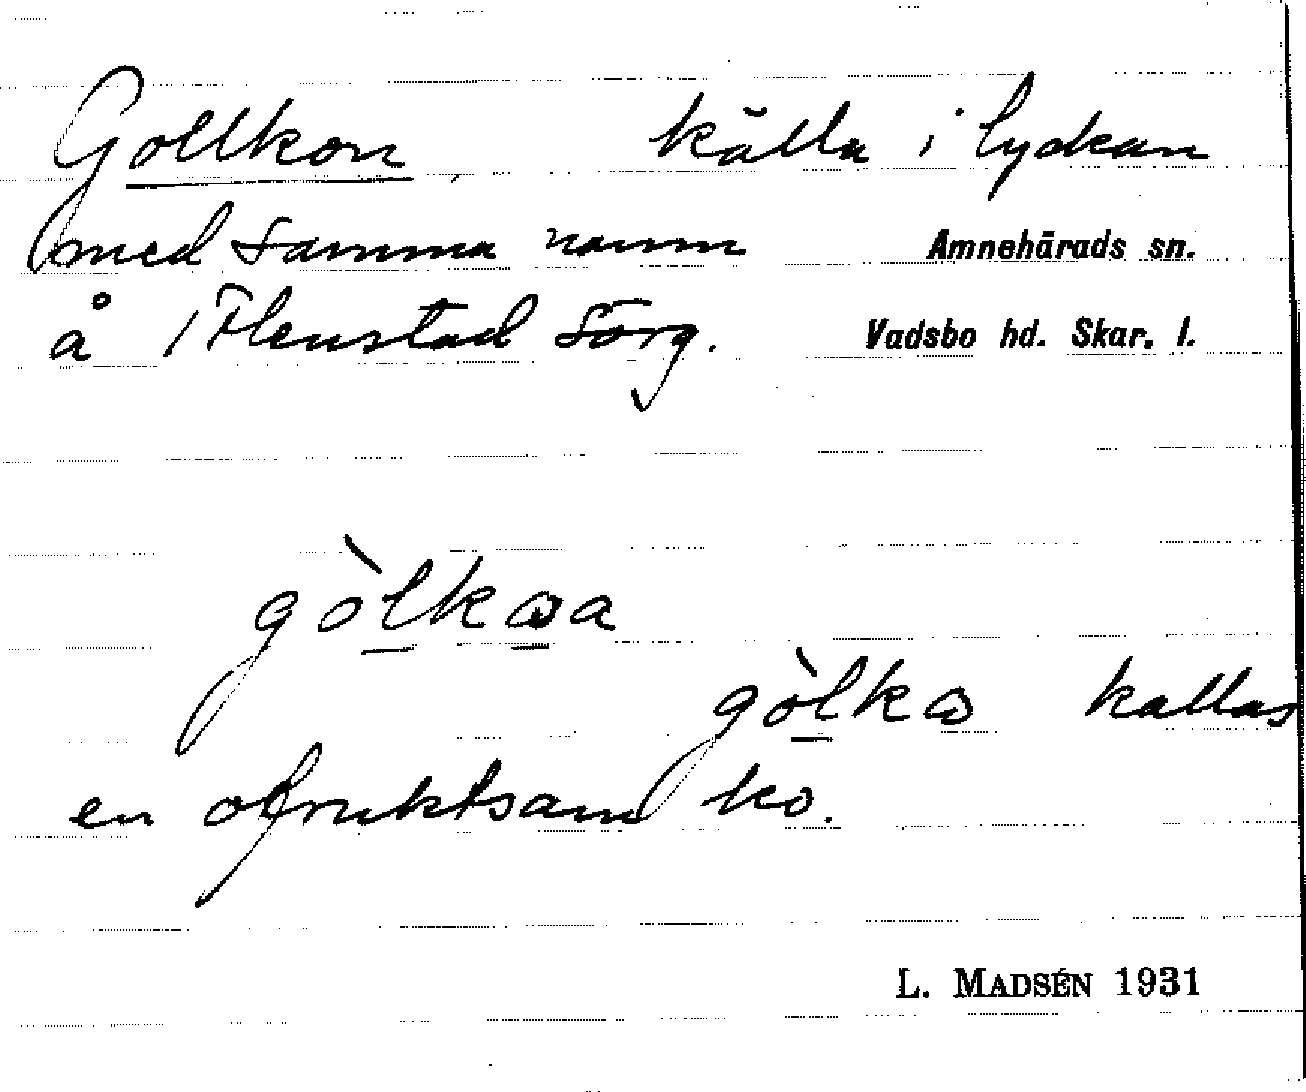 Gollkon, källa i lyckan
med samma namn Amnehärads sn.
å 1 Flenstad Sörg. Vadsbo hd. Skar. l.
gòlkωa
gòlkω kallas
en ofruktsam ko.
L. MADSÉN 1931